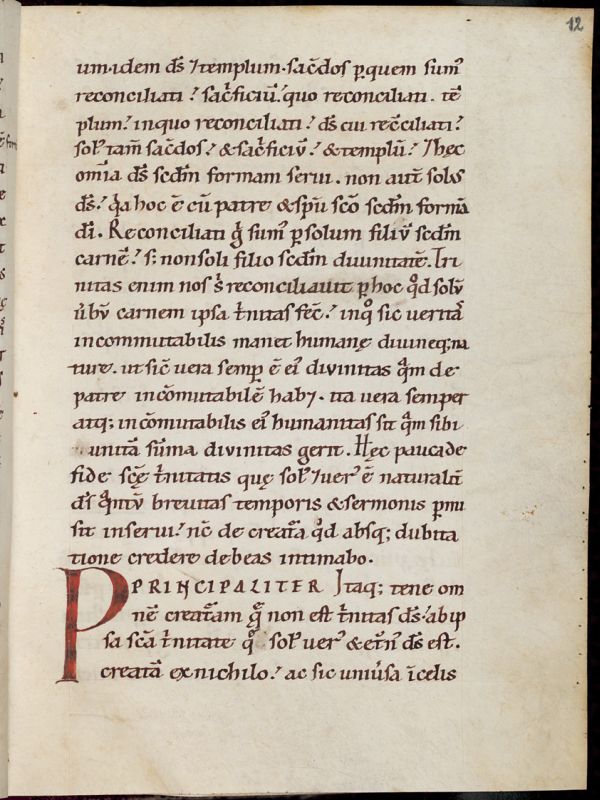 12
um. idem ds̄ ⁊ templum. sac̄dos ꝑ quem sumꝰ
reconciliati? sac̄ficiū. quo reconciliati. tē
plum? in quo reconciliati? ds̄ cui rec̄ciliati?
solꝰ tam̄ sac̄dos? & sac̄ficiū? & templū? ⁊ hęc
om̄ia ds̄ scdm̄ formam serui. non aut̄ solus
ds̄? q̄a hoc ē cū patre & sp̄u sc̄o scdm̄ formā
di̅. Reconciliati g̊ sumꝰ ꝑ solum filiū scdm̄
carnē? s; non soli filio scdm̄ diuinitatē. Tri
nitas enim nos s̄ reconciliauit ꝑ hoc qd̊ solū
ūbū carnem ipsa t̄nitas fec̄? inq̊ sic ueritā
incommutabilis manet humanę diuineq; na
turę. ut sic̄ uera semꝑ ē eiꝰ diuinitas q̄m de
patre incōmutabilē hab⁊. ita uera semper
atq; incōmutabilis eiꝰ humanitas sit q̄m sibi
unitā sūma diuinitas gerit. Hęc pauca de
fide scę̄ t̄nitatis quę solꝰ ⁊ uerꝰ ē naturalit̄
ds̄ q̄ntū breuitas temporis & sermonis ꝑmi
sit inserui? nc̄ de creat̄a qd̊ absq; dubita
tione credere debeas intimabo.
PPRINCIPALITER Itaq; tene om
nē creat̄am q̨̄ non est t̄nitas ds̄? ab ip
sa sc̄a t̄nitate q̊ solꝰ uerꝰ & et̄nꝰ ds̄ est.
creatā ex nichilo? ac sic uniūsa ī celis